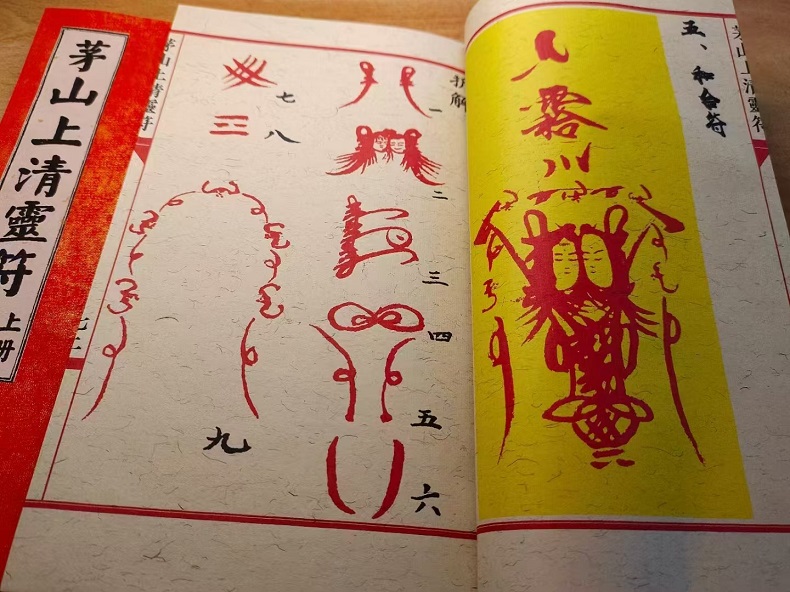 茅山上清靈符
五、和合符
拆解
一
二
三
四
五
六
七
八
九
茅山上清靈符
茅山上清靈符
上册